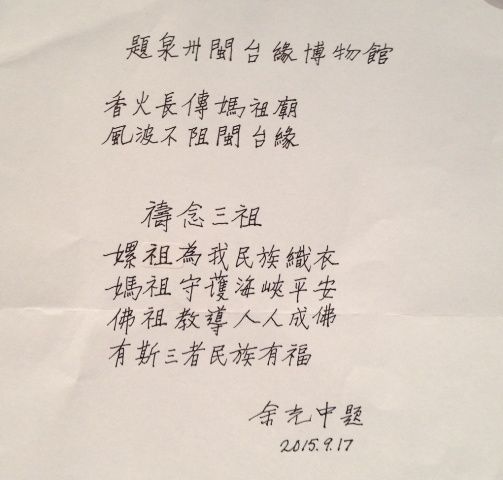 題泉州閩台緣博物館
香火長傳媽祖廟
風波不阻閩台緣
禱念三祖
嫘祖為我民族織衣
媽祖守護海峽平安
佛祖教導人人成佛
有斯三者民族有福
余光中題
2015.9.17